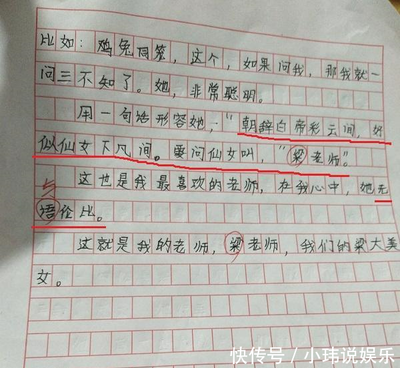 比如：鸡兔同笼，这个，如果问我，那我就一
问三不知了。她，非常聪明。
用一句话形容她；“朝辞白帝彩云间，好
似仙女下凡间。要问仙女叫，“梁老师”。
这也是我最喜欢的老师，在我心中，她无
与
语伦比。
这就是我的老师，梁老师，我们的梁大美
女。
快传号／小玮说娱乐